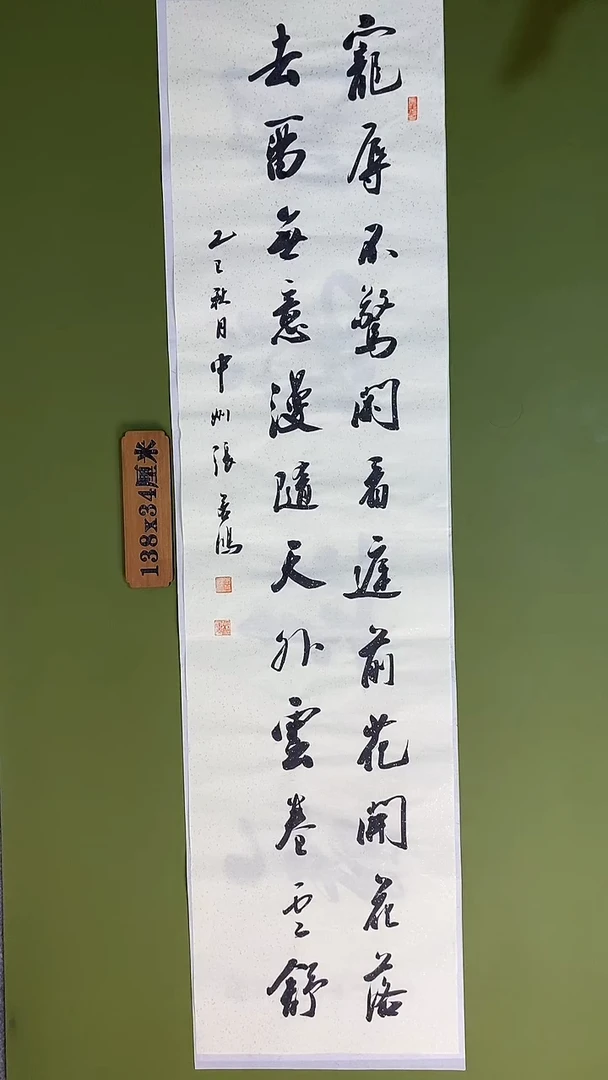 寵辱不驚閑看庭前花開花落
去留無意漫隨天外雲卷雲舒
乙巳秋月中州張善鴻
138x34厘米